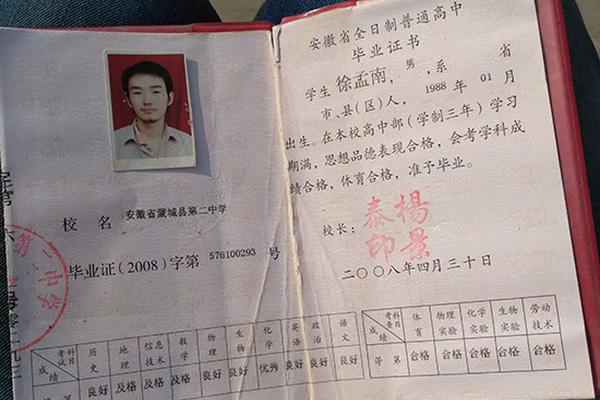 校名 安徽省蒙城县第二中学
毕业证(2008)字第 576100293 号
第二中学
考试科目 成绩 历史 地理 信息技术 数学 物理 生物 化学 英语 政治 语文
第 良好 及格 及格 及格 良好 良好 优秀 良好 良好 良好
安徽省全日制普通高中
毕业证书
学生 徐孟南,男,系 省
市、县(区)人,1988 年 01 月
出生。在本校高中部(学制三年)学习
期满,思想品德表现合格,会考学科成
绩合格,体育合格,准予毕业。
校长:
泰楊
印景
二〇〇八年四月三十日
考查科目 成绩 体育 物理实验 化学实验 生物实验 劳动技术
等第 合格 合格 合格 合格 合格